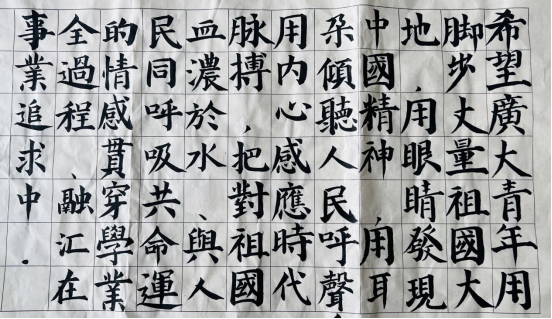 希望廣大青年用
脚步丈量祖國大
地,用眼睛發現
中國精神,用耳
朵傾聽人民呼聲,
用内心感應時代
脉搏,把對祖國
血濃於水、與人
民同呼吸共命運
的情感貫穿學業
全過程、融江在
事業追求中.